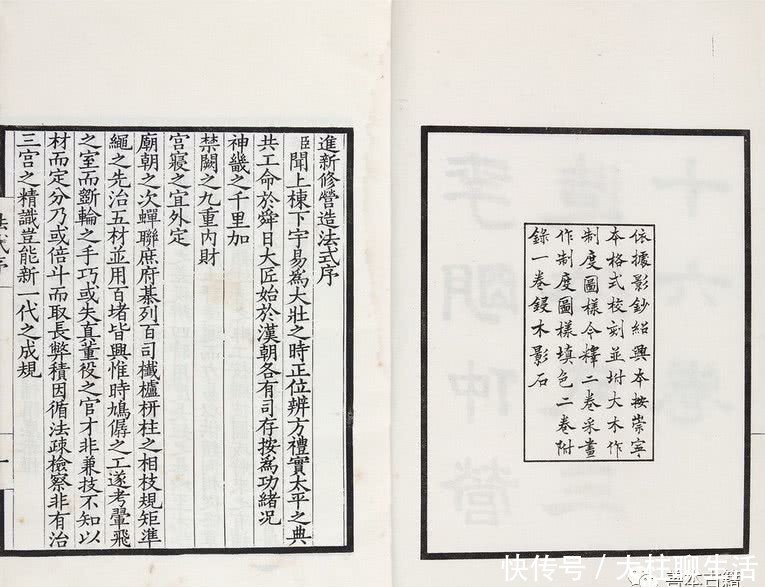 依據影鈔紹興本按崇寧
本格式校刻並坿大木作
制度圖樣今釋二卷采畫
作制度圖樣填色二卷附
錄一卷鋟木影石
進新修營造法式序
臣聞上棟下宇易為大壯之時正位辨方禮實太平之典
共工命於舜日大匠始於漢朝各有司存按為功緒況
神畿之千里加
禁闕之九重內財
宮寢之宜外定
廟朝之次蟬聯庶府棊列百司櫼櫨枅柱之相枝規矩準
繩之先治五材並用百堵皆興惟時鳩僝之工遂考翬飛
之室而斵輪之手巧或失真董役之官才非兼技不知以
材而定分乃或倍斗而取長弊積因循法疎檢察非有治
三宮之精識豈能新一代之成規
法式序
一
十六卷
造
三
李明仲營
快传号/大柱聊生活
善本古籍